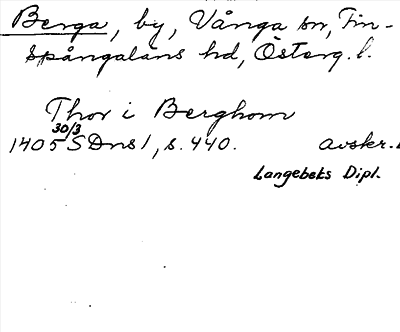 Berga, by, Vånga sn, Fin-
spångaläns hd, Österg. l.
Thor i Berghom
30/3
1405 SDns 1, s. 440. avskr.
Langebeks Dipl.